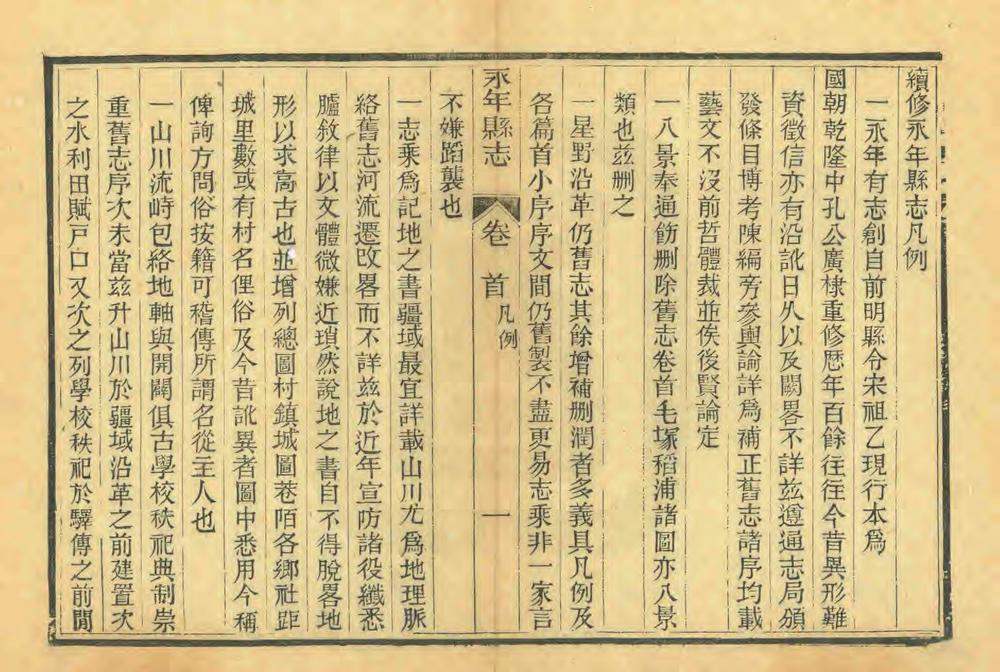 續修永年縣志凡例
一永年有志創自前明縣令宋祖乙現行本爲
國朝乾隆中孔公廣棣重修歴年百餘往往今昔異形難
資徵信亦有沿訛日久以及闕畧不詳兹遵通志局頒
發條目博考陳編旁參輿論詳爲補正舊志諸序均載
藝文不沒前哲體裁並俟後賢論定
一八景奉通飭刪除舊志卷首毛塚稻浦諸圖亦八景
類也兹刪之
一星野沿革仍舊志其餘增補刪潤者多義具凡例及
各篇首小序序文間仍舊製不盡更易志乘非一家言
永年縣志 卷首 凡例 一
不嫌蹈襲也
一志乘爲記地之書疆域最宜詳載山川尤爲地理脈
絡舊志河流遷改畧而不詳兹於近年宣防諸役纖悉
臚敘律以文體微嫌近瑣然說地之書自不得脫畧地
形以求高古也並增列總圖村鎮城圖巷陌各鄉社距
城里數或有村名俚俗及今昔訛異者圖中悉用今稱
俾詢方問俗按籍可稽傳所謂名從主人也
一山川流峙包絡地軸與開闢俱古學校秩祀典制崇
重舊志序次未當兹升山川於疆域沿革之前建置次
之水利田賦戸口又次之列學校秩祀於驛傳之前間